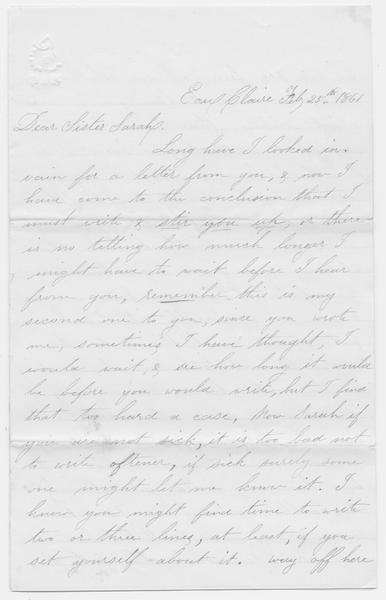 Eau Claire Feb 25th 1861
Dear Sister Sarah.
Long have I looked in
vain for a letter from you, & now I
have come to the conclusion that I
must write, & stir you up, or there
is no telling how much longer I
might have to wait before I hear
from you, remember this is my
second one to you, since you wrote
me, sometimes I have thought, I
would wait, & see how long it would
be before you would write, but I find
that too hard a case, Now Sarah if
you are not sick, it is too bad not
to write oftener, if sick surely some
one might let me know it. I
know you might find time to write
two or three lines, at least, if you
set yourself about it. way off here